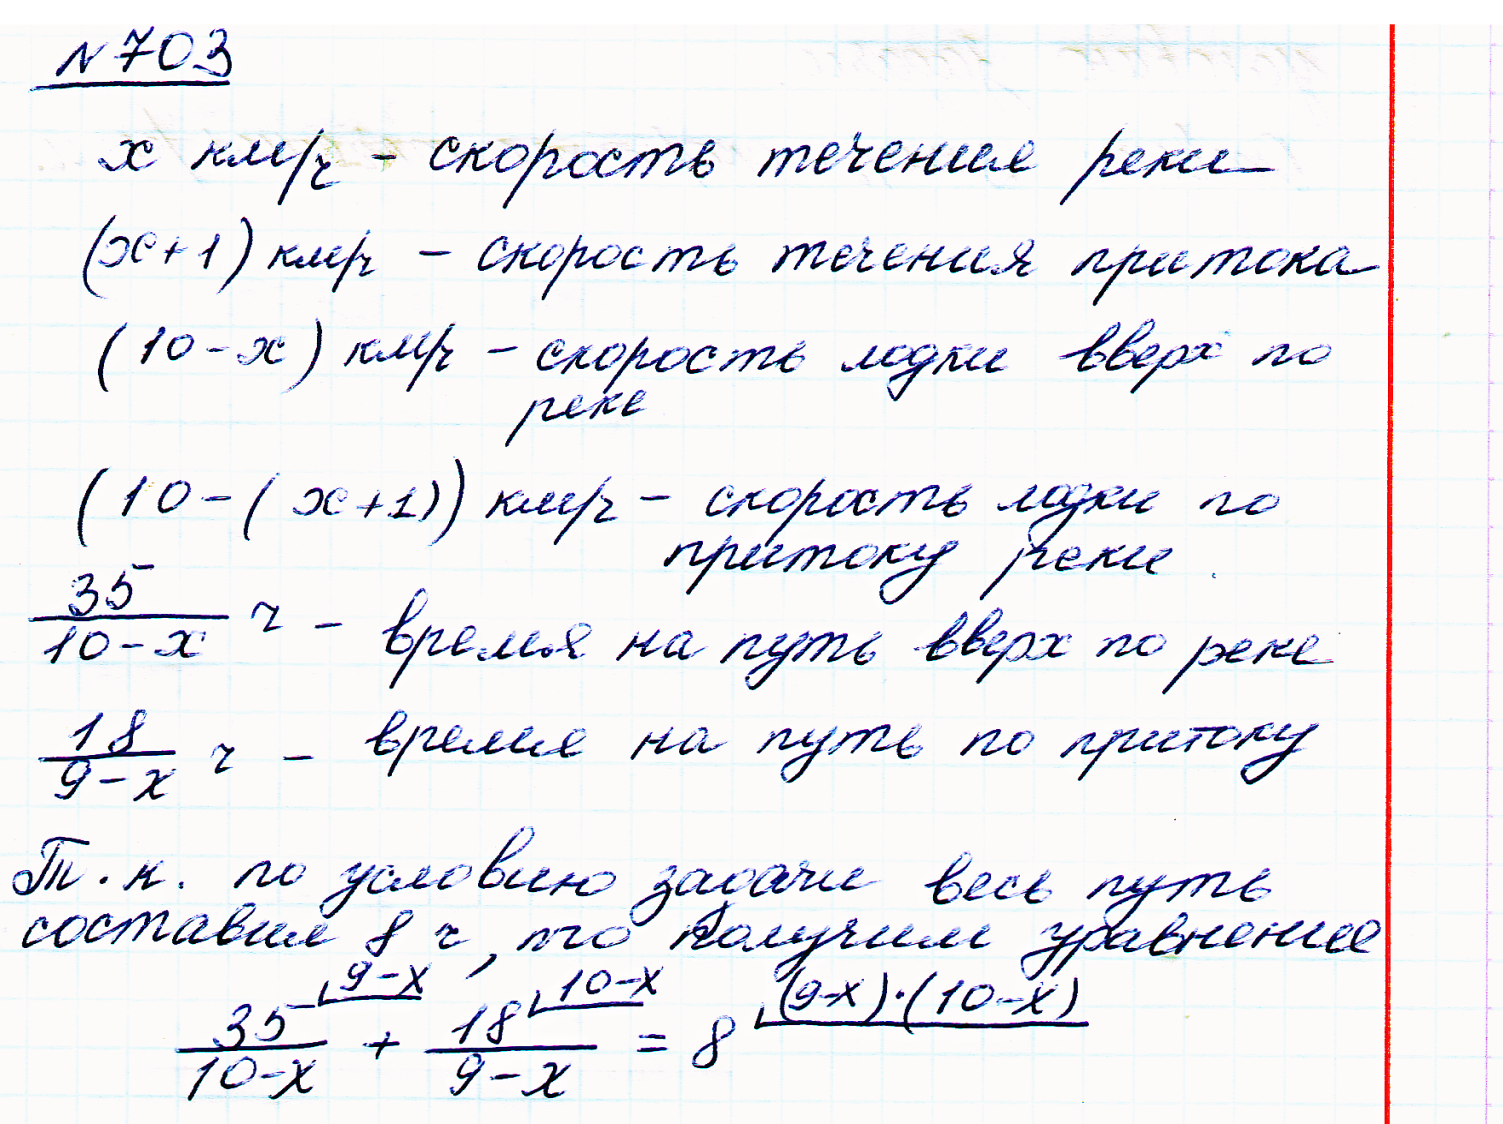 №703
x км/ч - скорость течения реки
(x+1) км/ч - скорость течения притока
(10-x) км/ч - скорость лодки вверх по
реке
(10-(x+1)) км/ч - скорость лодки по
притоку реки.
35/(10-x) ч - время на путь вверх по реке
18/(9-x) ч - время на путь по притоку
Т.к. по условию задачи весь путь
составил 8 ч, то получим уравнение
35/(10-x) ⌊9-x + 18/(9-x) ⌊10-x = 8 ⌊(9-x)·(10-x)